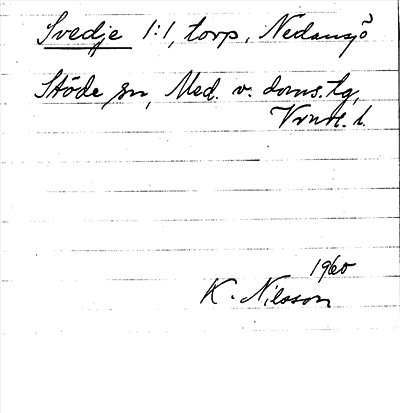 Svedje 1:1, torp, Nedansjö
Stöde sn, Med. v. doms. tg,
Vrnl. l.
1960
K. Nilsson